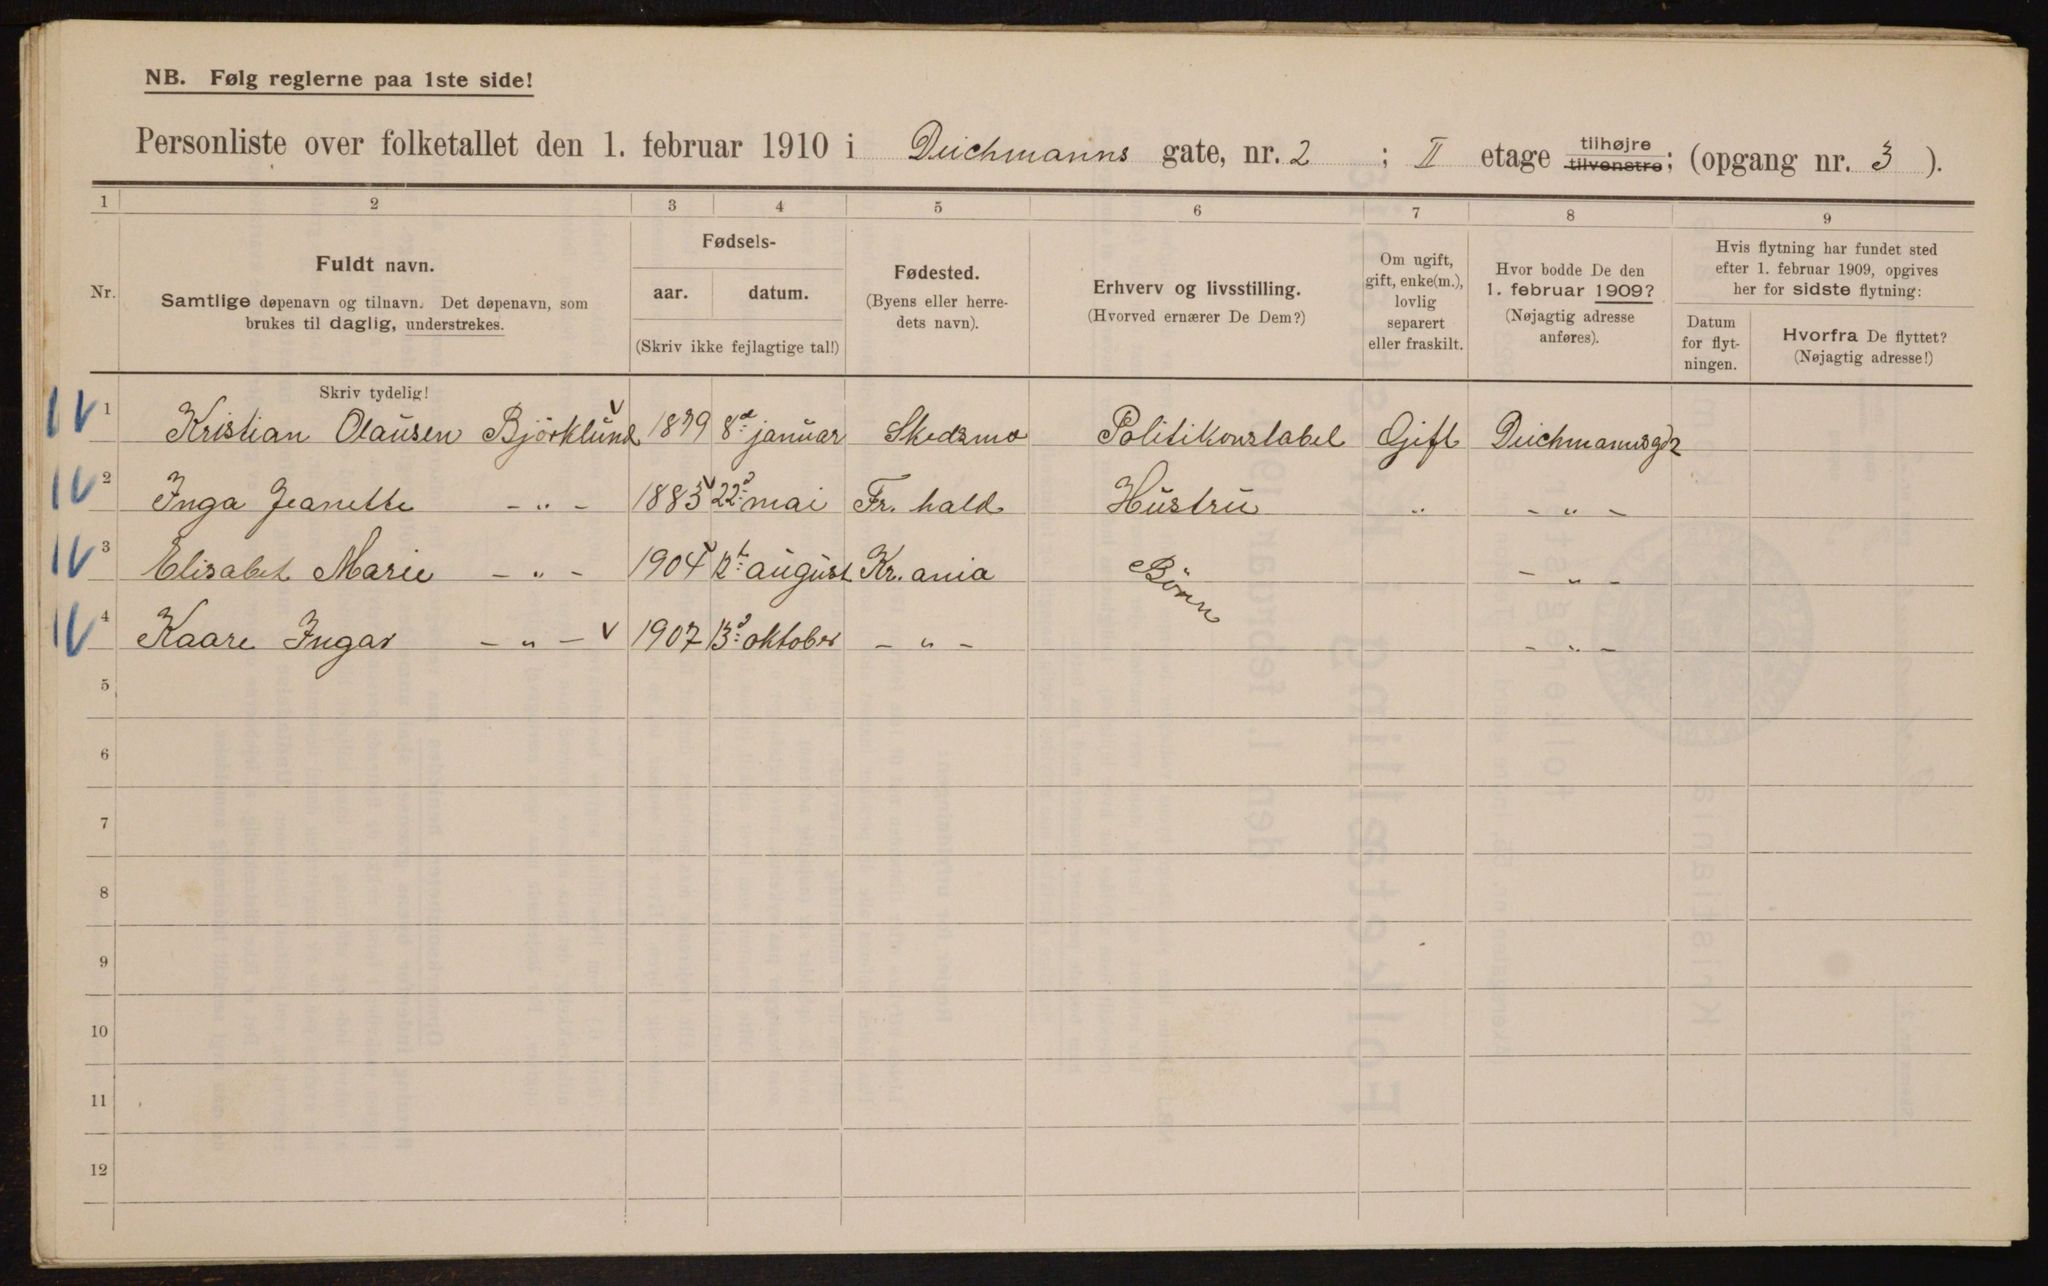 NB. Følg reglerne paa 1ste side!
Personliste over folketallet den 1. februar 1910 i Deichmanns gate, nr. 2 ; II etage tilhøjre tilvenstre; (opgang nr. 3 ).
1 2 3 4 5 6 7 8 9
Nr.
Fuldt navn.
Samtlige døpenavn og tilnavn. Det døpenavn, som
brukes til daglig, understrekes.
Fødsels-
aar. datum.
(Skriv ikke fejlagtige tal!)
Fødested.
(Byens eller herre-
dets navn).
Erhverv og livsstilling.
(Hvorved ernærer De Dem?)
Om ugift,
gift, enke(m.),
lovlig
separert
eller fraskilt.
Hvor bodde De den
1. februar 1909?
(Nøjagtig adresse
anføres).
Hvis flytning har fundet sted
efter 1. februar 1909, opgives
her for sidste flytning:
Datum
for flyt-
ningen.
Hvorfra De flyttet?
(Nøjagtig adresse!)
Skriv tydelig!
1 Kristian Olausen Bjørklund 1879 8de januar Skedsmo Politikonstabel Gift Deichmannsgd 2
2 Inga Jeanette - " - 1885 22d mai Fr. hald Hustru " - " -
3 Elisabet Marie - " - 1904 12t august Kr. ania Børn - " -
4 Kaare Ingar - " - 1907 13d oktober - " - - " -
5
6
7
8
9
10
11
12